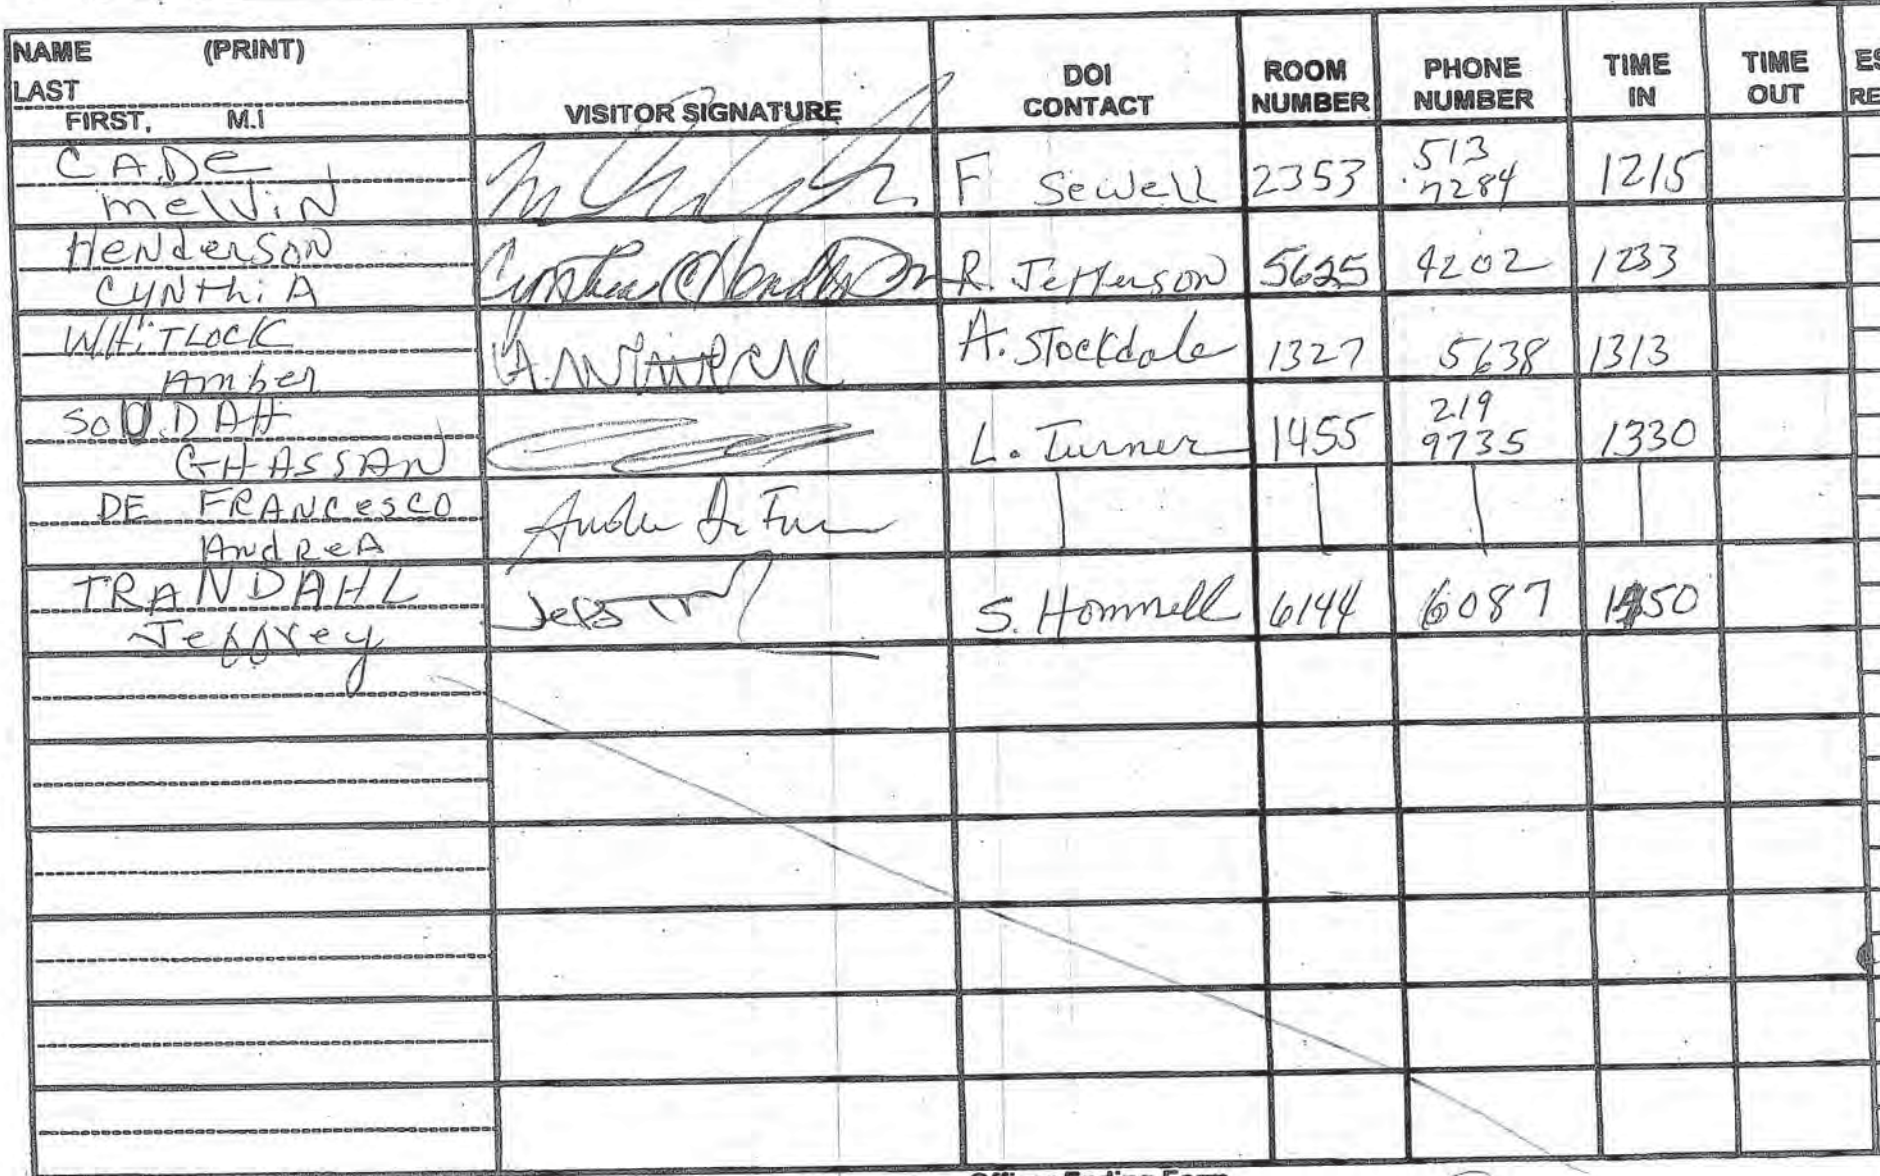 NAME (PRINT)
LAST
FIRST, M.I
VISITOR SIGNATURE
DOI
CONTACT
ROOM
NUMBER
PHONE
NUMBER
TIME
IN
TIME
OUT
ES
RE
CADE
MelViN
F Sewell 2353 513 7284 1215
HENdeRSON
CYNthiA
Cynthia C Henderson R. Jefferson 5625 4202 1233
WHiTLOCK
Amber
A. Stockdale 1327 5638 1313
SOUDAH
GHASSAN
L. Turner 1455 219 9735 1330
DE FRANCESCO
ANdReA
TRANDAHL
Jeffrey
S. Hommell 6144 6087 1450
Officer Ending Form